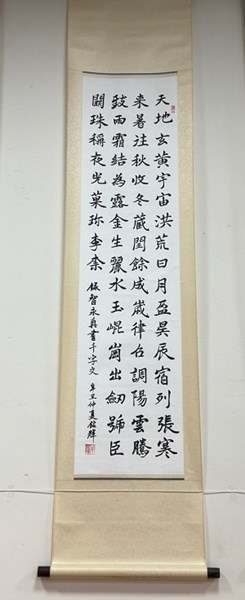 天地玄黃宇宙洪荒日月盈昃辰宿列張寒
来暑往秋收冬藏閏餘成歲律呂調陽雲騰
致雨霜結為露金生麗水玉崐崗出劒號臣
闕珠稱夜光菓珍李柰 錄智永真書千字文 辛丑仲夏銘輝